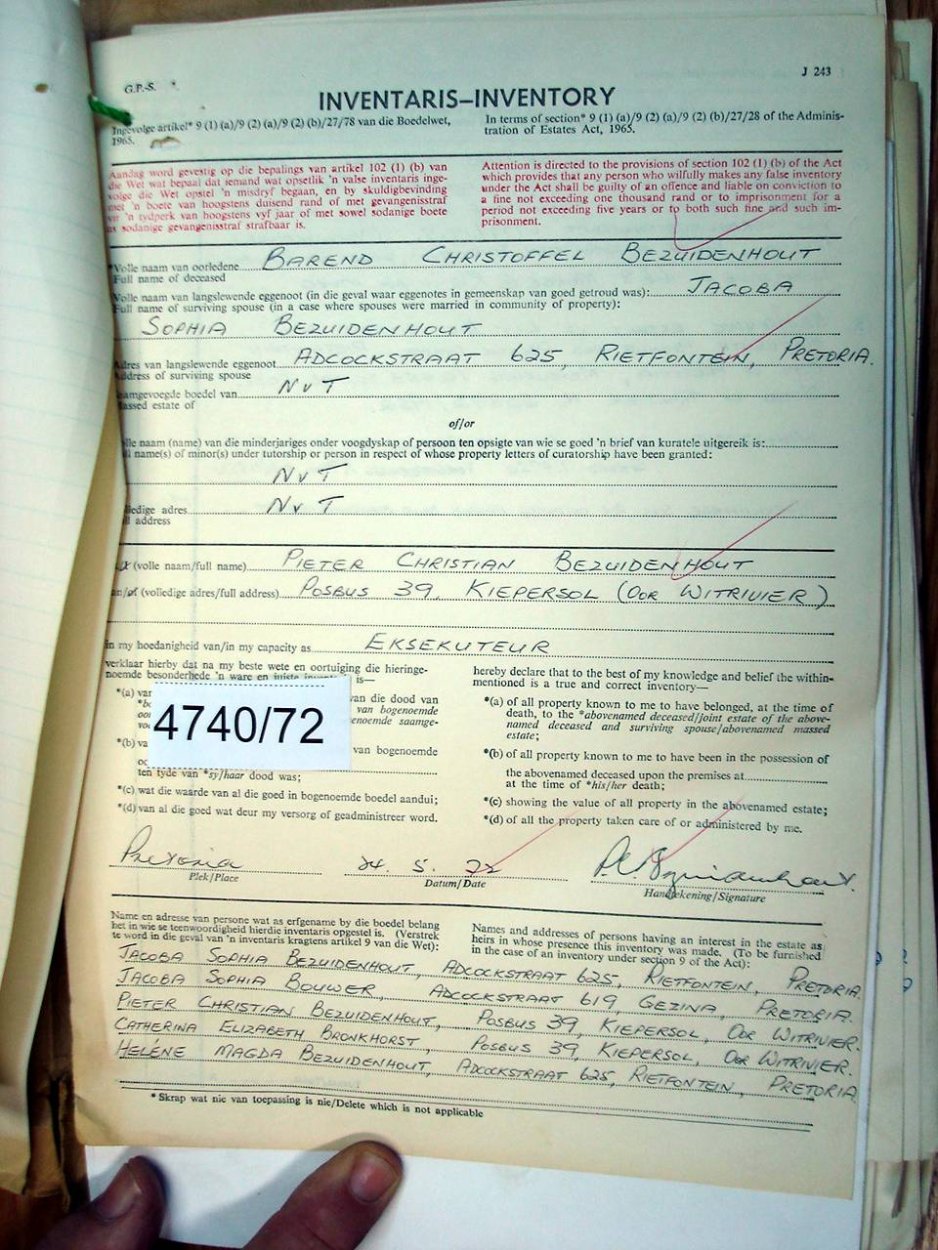 G.P.-S.
J 243
INVENTARIS–INVENTORY
Ingevolge artikel* 9 (1) (a)/9 (2) (a)/9 (2) (b)/27/78 van die Boedelwet,
1965.
In terms of section* 9 (1) (a)/9 (2) (a)/9 (2) (b)/27/28 of the Adminis-
tration of Estates Act, 1965.
Aandag word gevestig op die bepalings van artikel 102 (1) (b) van
die Wet wat bepaal dat iemand wat opsetlik 'n valse inventaris inge-
volge die Wet opstel 'n misdryf begaan, en by skuldigbevinding
met 'n boete van hoogstens duisend rand of met gevangenisstraf
vir 'n tydperk van hoogstens vyf jaar of met sowel sodanige boete
as sodanige gevangenisstraf strafbaar is.
Attention is directed to the provisions of section 102 (1) (b) of the Act
which provides that any person who wilfully makes any false inventory
under the Act shall be guilty of an offence and liable on conviction to
a fine not exceeding one thousand rand or to imprisonment for a
period not exceeding five years or to both such fine and such im-
prisonment.
*Volle naam van oorledene BAREND CHRISTOFFEL BEZUIDENHOUT
Full name of deceased
Volle naam van langslewende eggenoot (in die geval waar eggenotes in gemeenskap van goed getroud was): JACOBA
Full name of surviving spouse (in a case where spouses were married in community of property):
SOPHIA BEZUIDENHOUT
Adres van langslewende eggenoot ADCOCKSTRAAT 625, RIETFONTEIN, PRETORIA.
Address of surviving spouse
boedel van NVT
Massed estate of
of/or
naam (name) van die minderjariges onder voogdyskap of persoon ten opsigte van wie se goed 'n brief van kuratele uitgereik is:
name(s) of minor(s) under tutorship or person in respect of whose property letters of curatorship have been granted:
NVT
adres NVT
address
(volle naam/full name) PIETER CHRISTIAN BEZUIDENHOUT
(volledige adres/full address) POSBUS 39, KIEPERSOL (OOR WITRIVIER)
in my hoedanigheid van/in my capacity as EKSEKUTEUR
verklaar hierby dat na my beste wete en oortuiging die hieringe-
noemde besonderhede 'n ware en juiste is—
*(a) van die dood van
van bogenoemde
enoemde saamge-
*(b) van bogenoemde
ten tyde van *sy/haar dood was;
*(c) wat die waarde van al die goed in bogenoemde boedel aandui;
*(d) van al die goed wat deur my versorg of geadministreer word.
4740/72
hereby declare that to the best of my knowledge and belief the within-
mentioned is a true and correct inventory—
*(a) of all property known to me to have belonged, at the time of
death, to the *abovenamed deceased/joint estate of the above-
named deceased and surviving spouse/abovenamed massed
estate;
*(b) of all property known to me to have been in the possession of
the abovenamed deceased upon the premises at
at the time of *his/her death;
*(c) showing the value of all property in the abovenamed estate;
*(d) of all the property taken care of or administered by me.
Pretoria 24. 5. 72 P.C. Bezuidenhout.
Plek/Place Datum/Date Handtekening/Signature
Name en adresse van persone wat as erfgename by die boedel belang
het in wie se teenwoordigheid hierdie inventaris opgestel is. (Verstrek
te word in die geval van 'n inventaris kragtens artikel 9 van die Wet):
Names and addresses of persons having an interest in the estate as
heirs in whose presence this inventory was made. (To be furnished
in the case of an inventory under section 9 of the Act):
JACOBA SOPHIA BEZUIDENHOUT, ADCOCKSTRAAT 625, RIETFONTEIN, PRETORIA
JACOBA SOPHIA BOUWER, ADCOCKSTRAAT 619 GEZINA, PRETORIA.
PIETER CHRISTIAN BEZUIDENHOUT, POSBUS 39, KIEPERSOL, OOR WITRIVIER.
CATHERINA ELIZABETH BRONKHORST, POSBUS 39, KIEPERSOL, OOR WITRIVIER.
HELÉNE MAGDA BEZUIDENHOUT, ADCOCKSTRAAT 625, RIETFONTEIN, PRETORIA
* Skrap wat nie van toepassing is nie/Delete which is not applicable